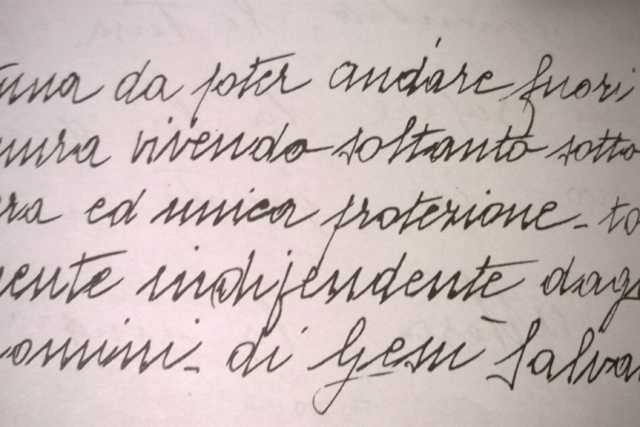 una da poter andare fuori
ura vivendo soltanto sotto
ra ed unica protezione - to
ente indipendente dagl
omini - di Gesù Salva